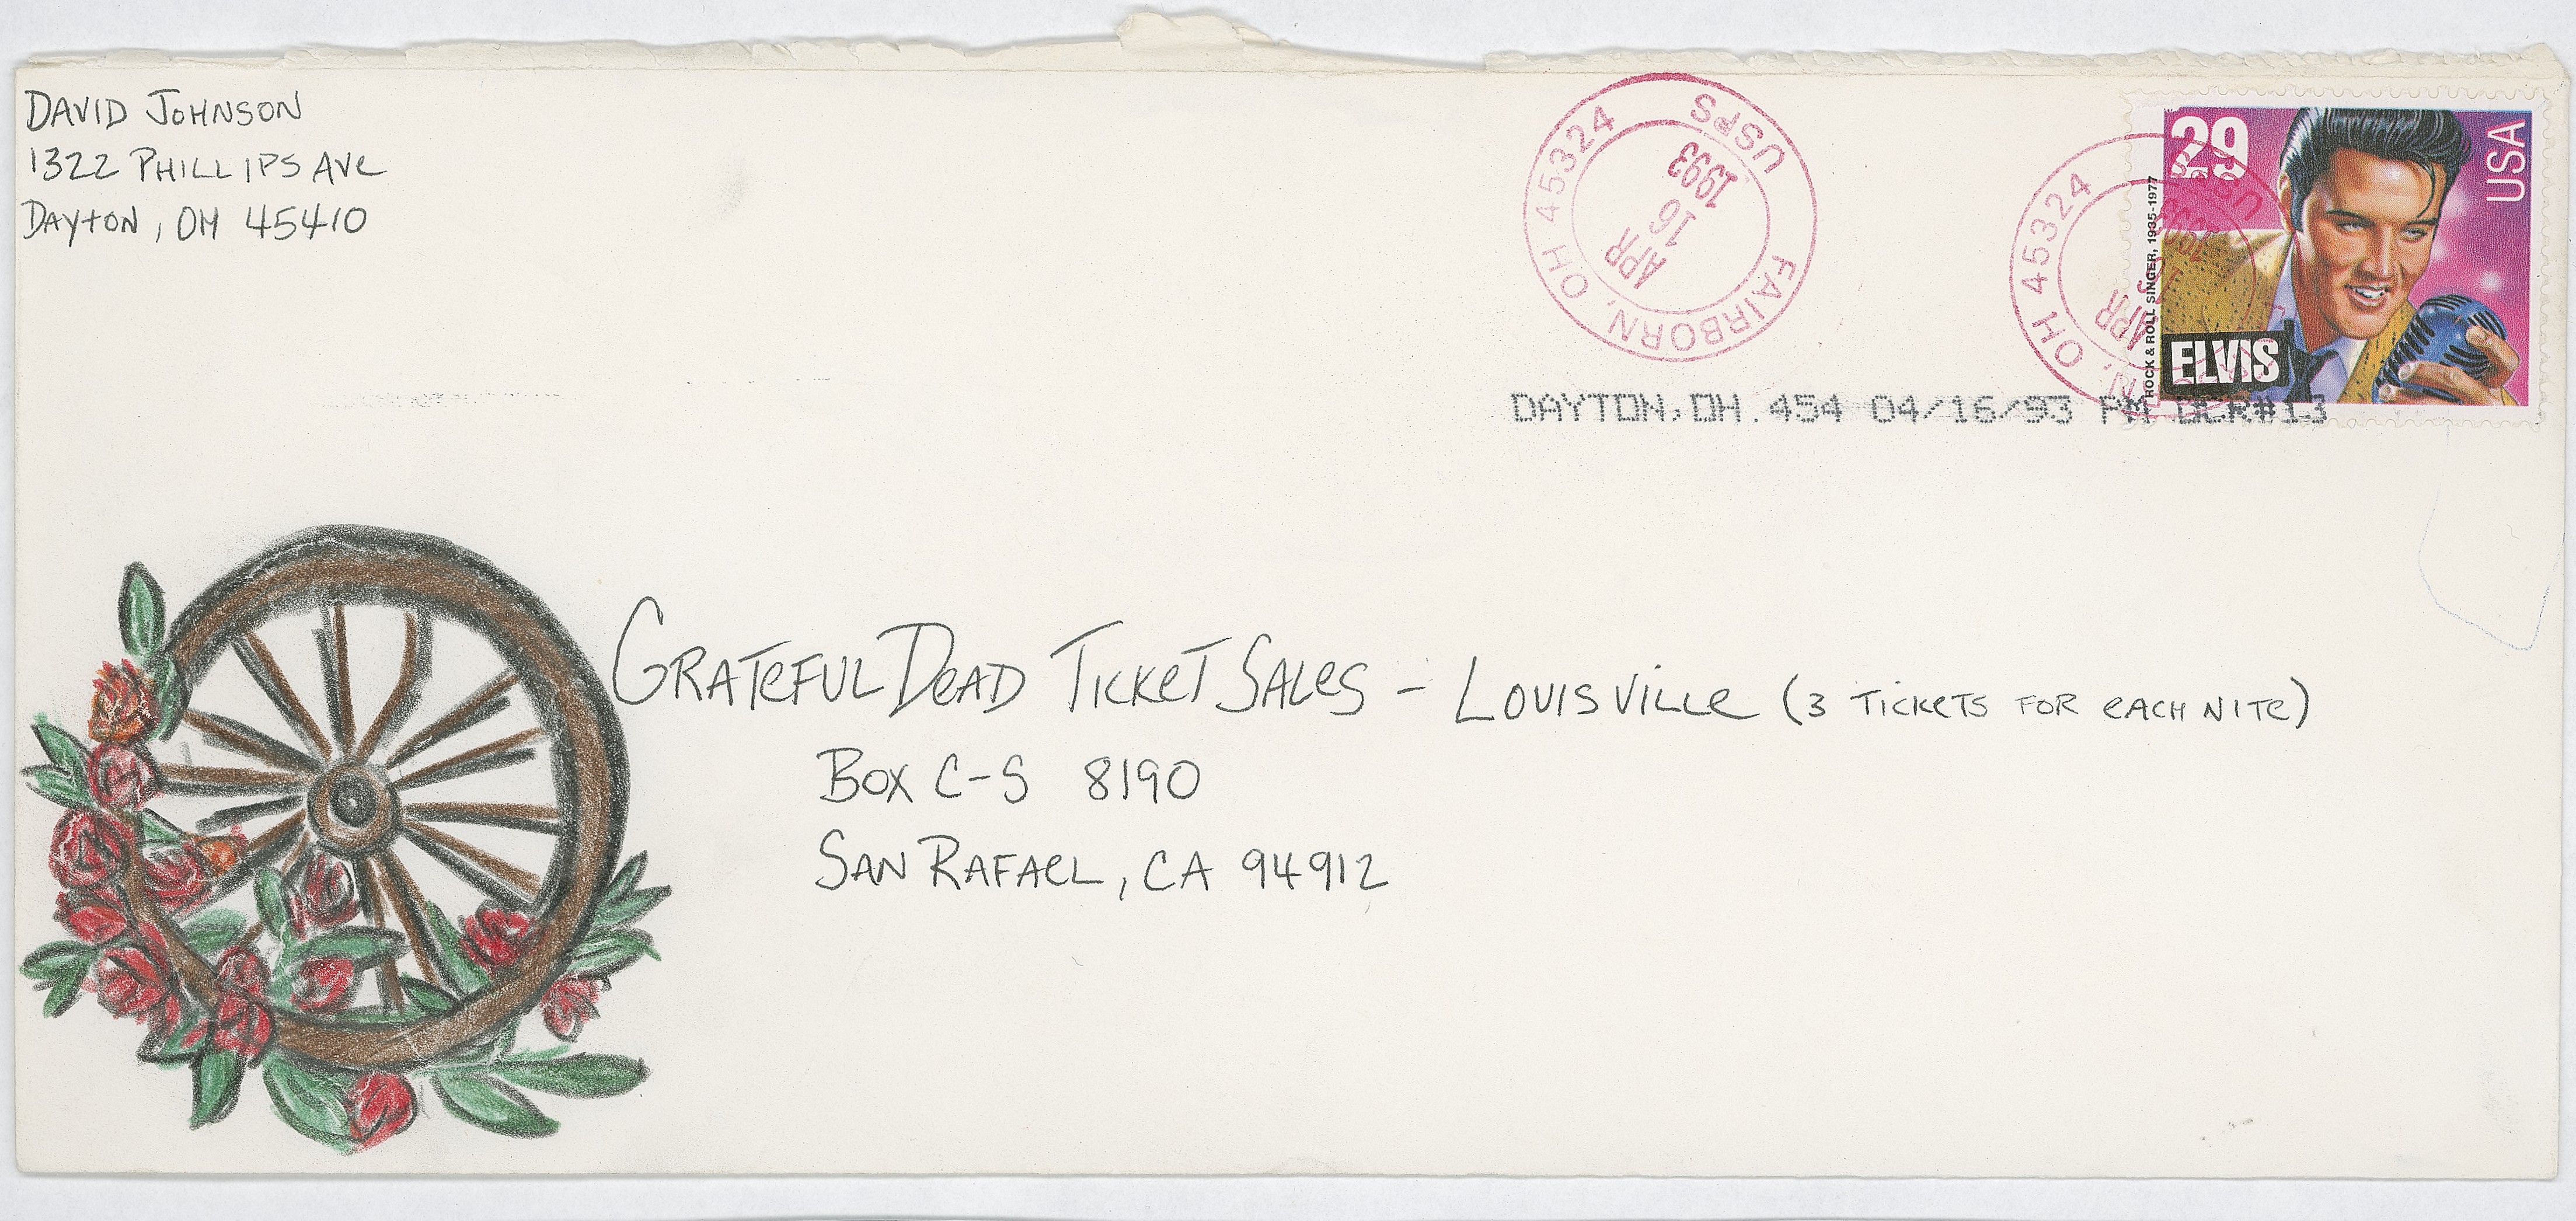 DAVID JOHNSON
1322 PHILLIPS AVe
DAYtON, OH 45410
FAIRBORN, OH 45324
USPS
APR
16
1993
OH 45324
APR
29
USA
ROCK & ROLL SINGER, 1935-1977
ELVIS
DAYTON, OH. 454 04/16/93 PM #13
GRATeFUL DeAD TICKeT SALeS - LOUISVILLe (3 TICKeTS FOR eACH NITe)
BOX C-S 8190
SAN RAFAeL, CA 94912